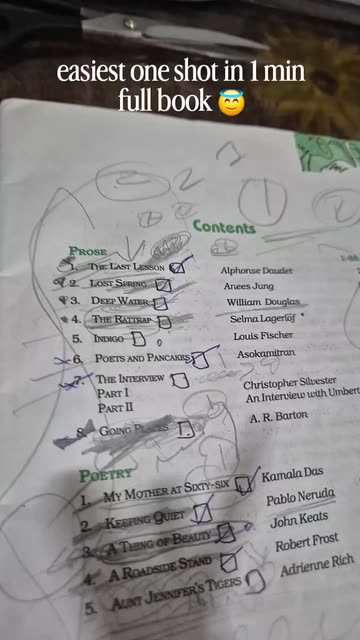 easiest one shot in 1 min
full book 😇
Contents
PROSE
1. THE LAST LESSON Alphonse Daudet
2. LOST SPRING Anees Jung
3. DEEP WATER William Douglas
4. THE RATTRAP Selma Lagerlof
5. INDIGO Louis Fischer
6. POETS AND PANCAKES Asokamitran
7. THE INTERVIEW Christopher Silvester
PART I An Interview with Umbert
PART II
8. GOING PLACES A. R. Barton
POETRY
1. MY MOTHER AT SIXTY-SIX Kamala Das
2. KEEPING QUIET Pablo Neruda
3. A THING OF BEAUTY John Keats
4. A ROADSIDE STAND Robert Frost
5. AUNT JENNIFER'S TIGERS Adrienne Rich